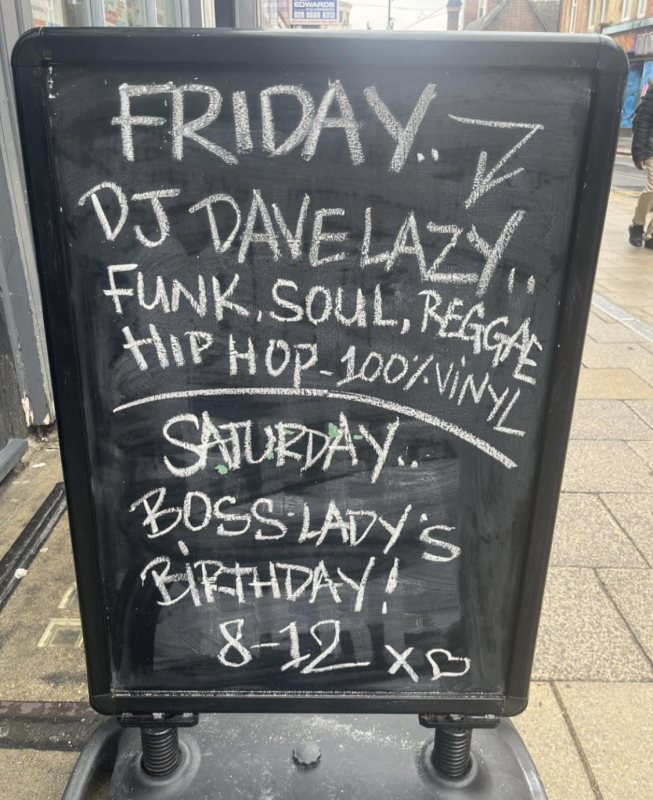 EDWARDS
FRIDAY..
DJ DAVE LAZY..
FUNK, SOUL, REGGAE
HIP HOP - 100% VINYL
SATURDAY..
BOSS LADY'S
BIRTHDAY!
8-12 X